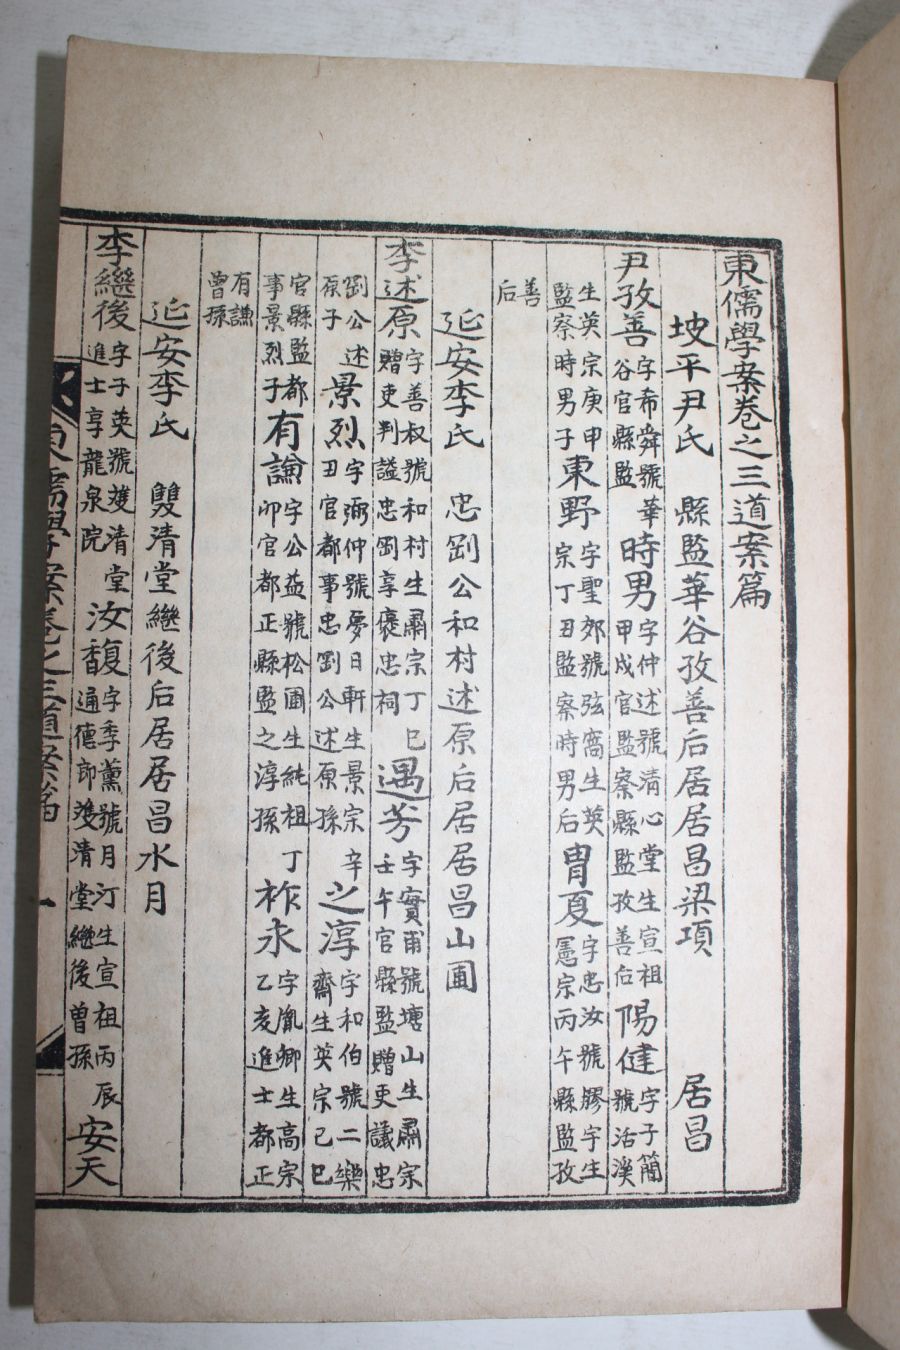 東儒學案卷之三道案篇
坡平尹氏 縣監華谷孜善后居居昌梁項 居昌
尹孜善 字希舜號華谷官縣監 時男 字仲述號清心堂生宣祖甲戌官監察縣監孜善后 陽健 字子簡號活溪
生英宗庚申監察時男子 東野 字聖郊號弦窩生英宗丁丑監察時男后 冑夏 字忠汝號膠宇生憲宗丙午縣監孜
善后
延安李氏 忠剛公和村述原后居居昌山圃
李述原 字善叔號和村生肅宗丁巳贈吏判謚忠剛享褒忠祠 遇芳 字實甫號塘山生肅宗壬午官縣監贈吏議忠
剛公述原子 景烈 字弼仲號夢日軒生景宗辛丑官都事忠剛公述原孫 之淳 字和伯號二樂齋生英宗己巳
官縣監都事景烈子 有謙 字公益號松圃生純祖丁卯官都正縣監之淳孫 祚永 字胤卿生高宗乙亥進士都正
有謙曾孫
延安李氏 雙清堂繼後后居居昌水月
李繼後 字子英號雙清堂進士享龍泉院 汝馥 字季薰號月汀生宣祖丙辰通德郎雙清堂繼後曾孫 安天
東儒學案卷之三道案篇 一